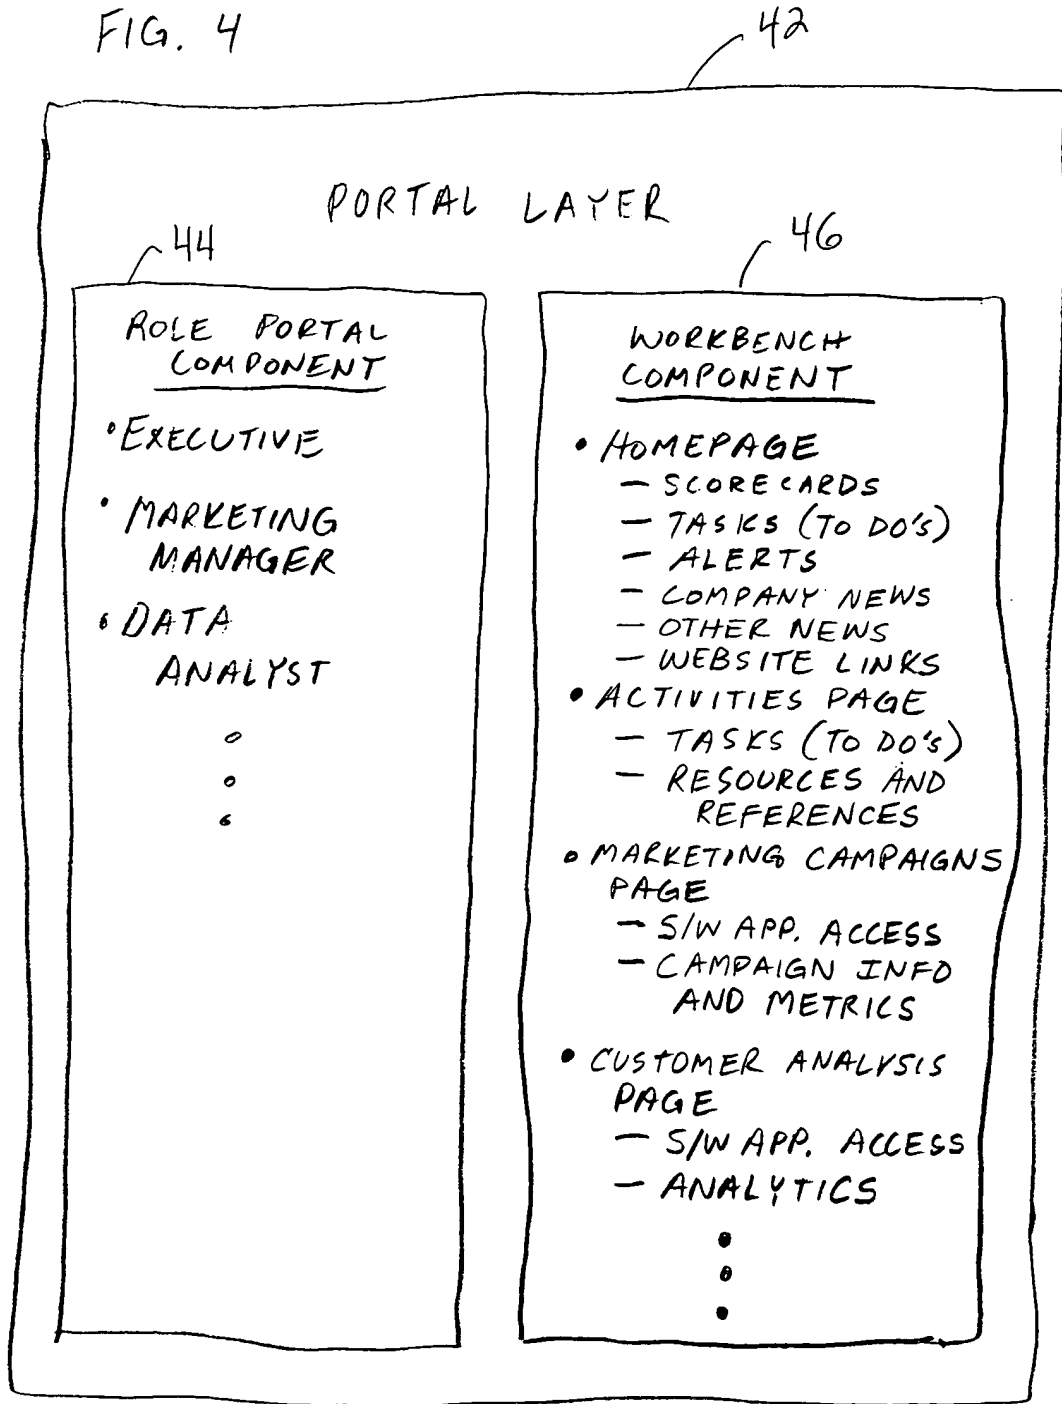 FIG. 4
42
PORTAL LAYER
44
ROLE PORTAL
COMPONENT
• EXECUTIVE
• MARKETING
MANAGER
• DATA
ANALYST
46
WORKBENCH
COMPONENT
• HOMEPAGE
— SCORECARDS
— TASKS (TO DO'S)
— ALERTS
— COMPANY NEWS
— OTHER NEWS
— WEBSITE LINKS
• ACTIVITIES PAGE
— TASKS (TO DO'S)
— RESOURCES AND
REFERENCES
• MARKETING CAMPAIGNS
PAGE
— S/W APP. ACCESS
— CAMPAIGN INFO
AND METRICS
• CUSTOMER ANALYSIS
PAGE
— S/W APP. ACCESS
— ANALYTICS